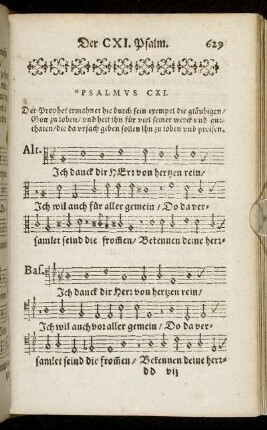 Der CXI. Psalm. 629
*PSALMVS CXI.
Der Prophet ermahnet hie durch sein exempel die gläubigen/
Gott zu loben/ vnd helt ihn für viel seiner werck vnd gut-
thaten/ die da vrsach geben sollen ihn zu loben vnd preisen.
Alt.
Ich danck dir HErr von hertzen rein/
Ich wil auch für aller gemein/ Do da ver-
samlet seind die frommen/ Bekennen deine herr-
Bas.
Ich danck dir Herr von hertzen rein/
Ich wil auch vor aller gemein/ Do da ver-
samlet seind die from̃en/ Bekennen deine herr-
DD vij